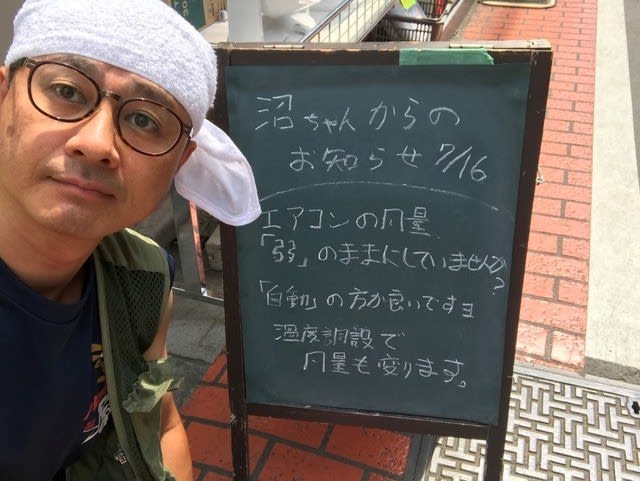 沼ちゃんからの
お知らせ 7/16
エアコンの風量
「弱」のままにしていませんか?
「自動」の方が良いですヨ
温度調設で
風量も変ります。